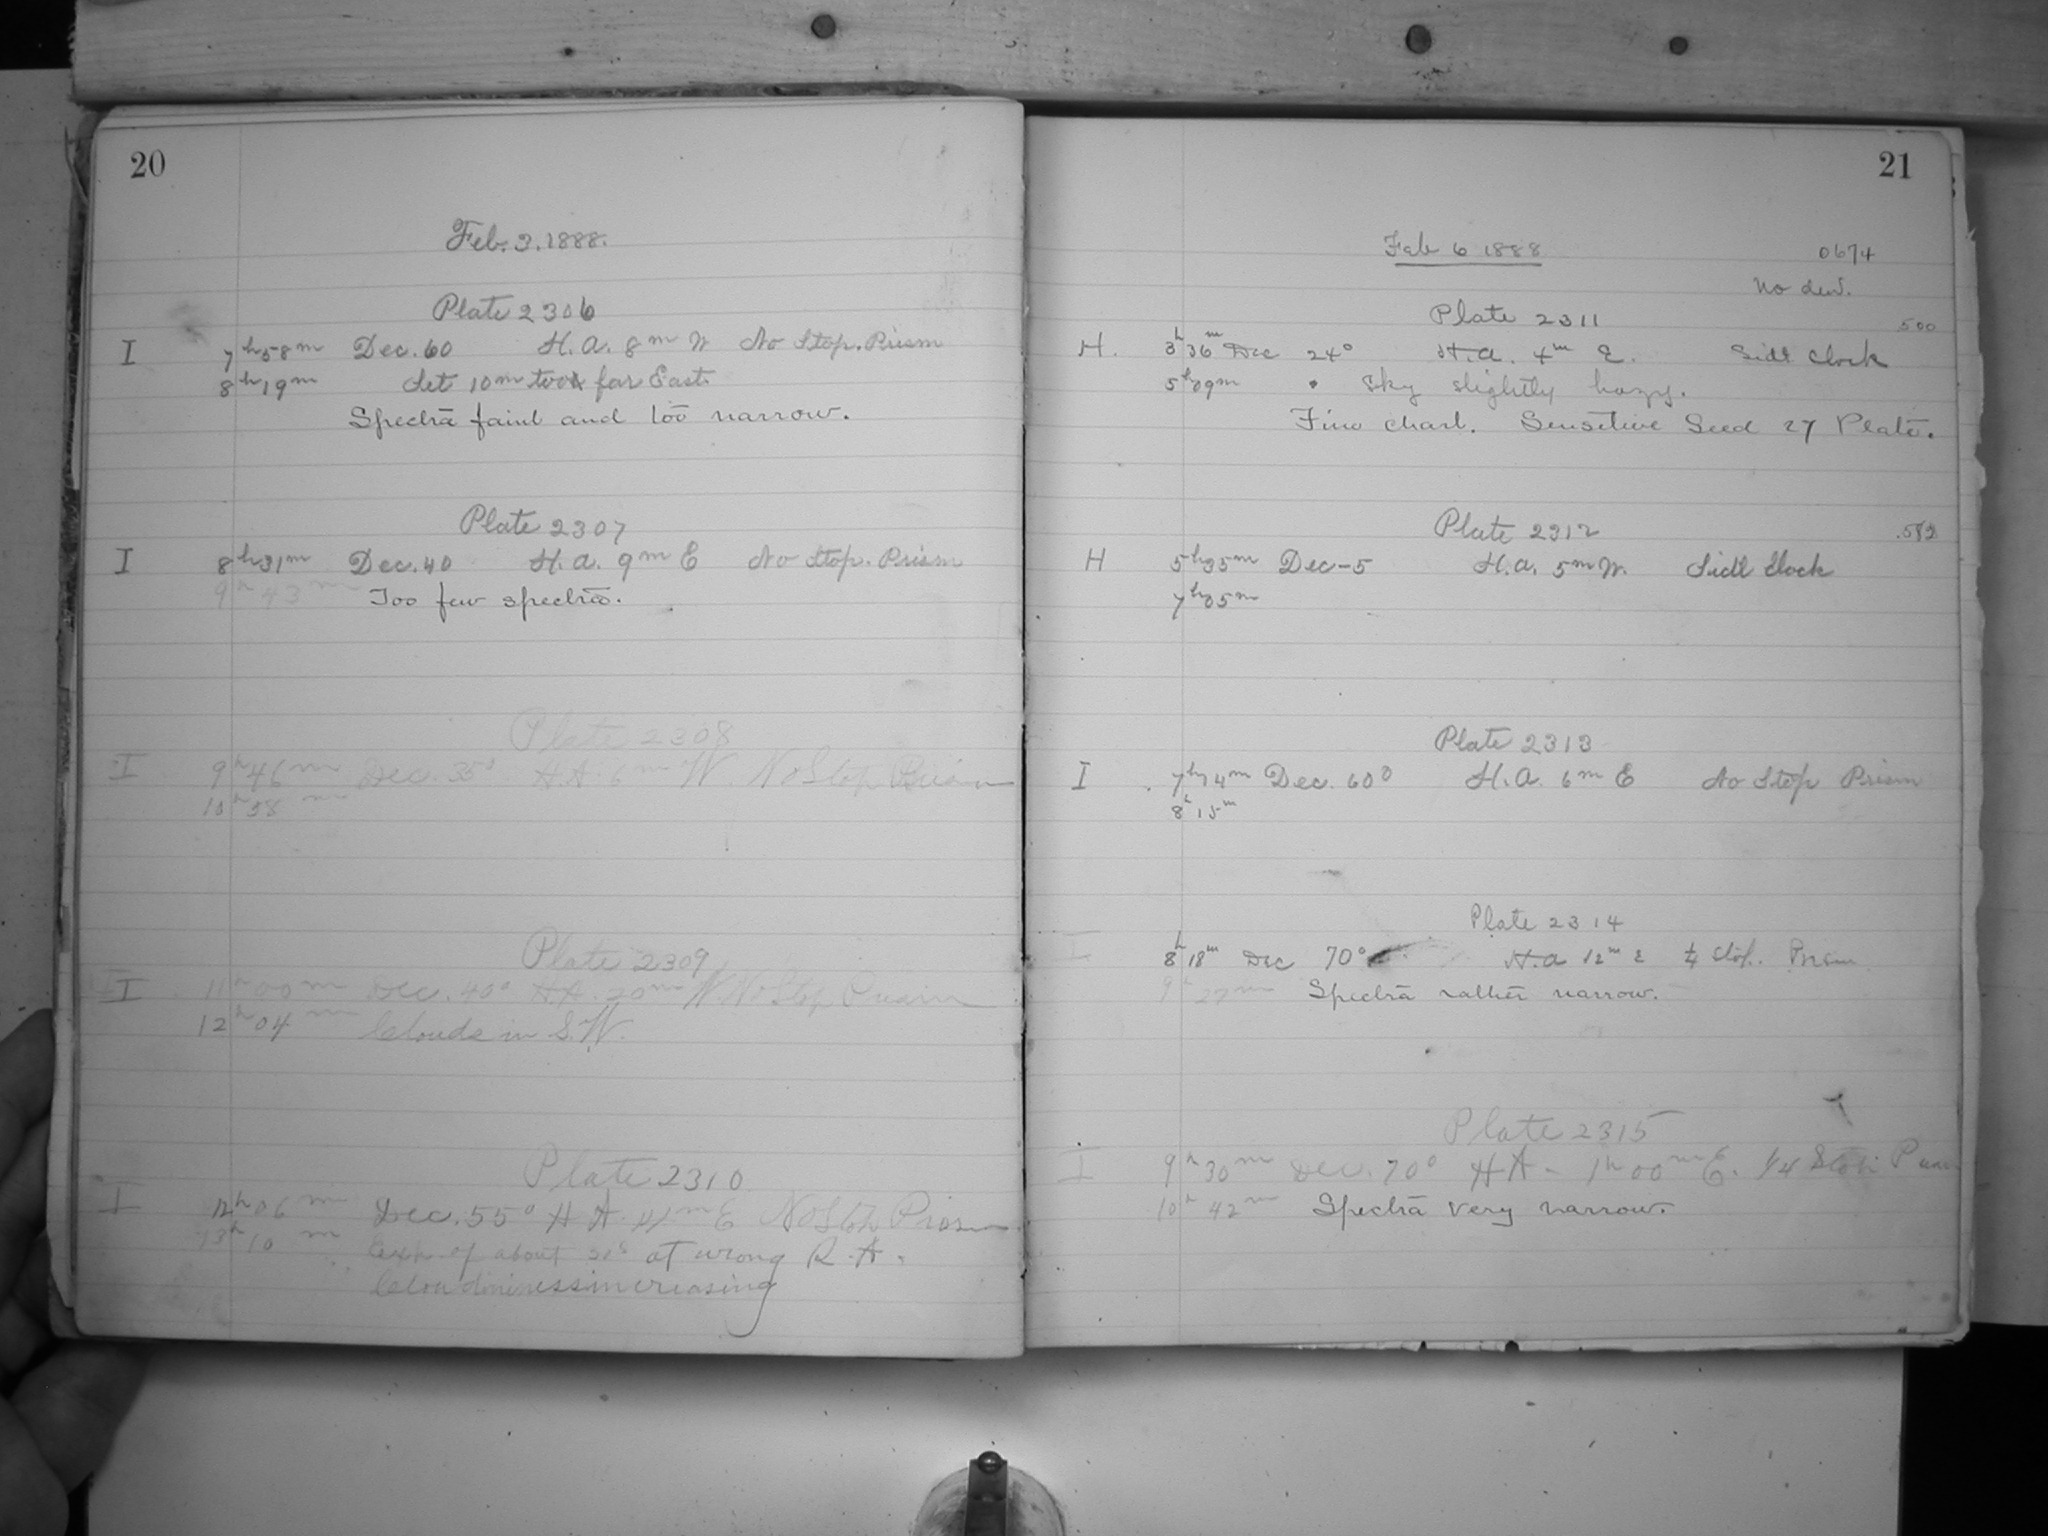 20
Feb. 3. 1888.
Plate 2306
I 7h 58m Dec. 60 H.A. 8m W No Stop. Prism
8h 19m Set 10m too far East.
Spectra faint and too narrow.
Plate 2307
I 8h 31m Dec. 40 H.A. 9m E No Stop. Prism
9h 43m Too few spectra.
Plate 2308
I 9h 46m Dec. 35° H.A. 6m W. No Stop Prism
10h 58m
Plate 2309
I 11h 00m Dec. 40° H.A. 20m W. No Stop Prism
12h 04m Clouds in S.W.
Plate 2310
I 12h 06m Dec. 55° H.A. m E No Stop Prism
13h 10m Exp. of about at wrong R.A.
Cloudiness increasing
21
Feb 6 1888 0674
No dew.
Plate 2311 500
H. 3h 36m Dec 24° H.a. 4m E. Sidl Clock
5h 09m Sky slightly hazy.
Fine chart. Sensitive Seed 27 Plate.
Plate 2312
H 5h 35m Dec -5 H.a. 5m W. Sidl Clock
7h 05m
Plate 2313
I 7h 14m Dec. 60° H.A. 6m E No Stop Prism
8h 15m
Plate 2314
I 8h 18m Dec 70° H.a 12m E 1/4 Stop. Prism
9h 27m Spectra rather narrow.
Plate 2315
I 9h 30m Dec. 70° H A - 1h 00m E. 1/4 Stop Prism
10h 42m Spectra very narrow.